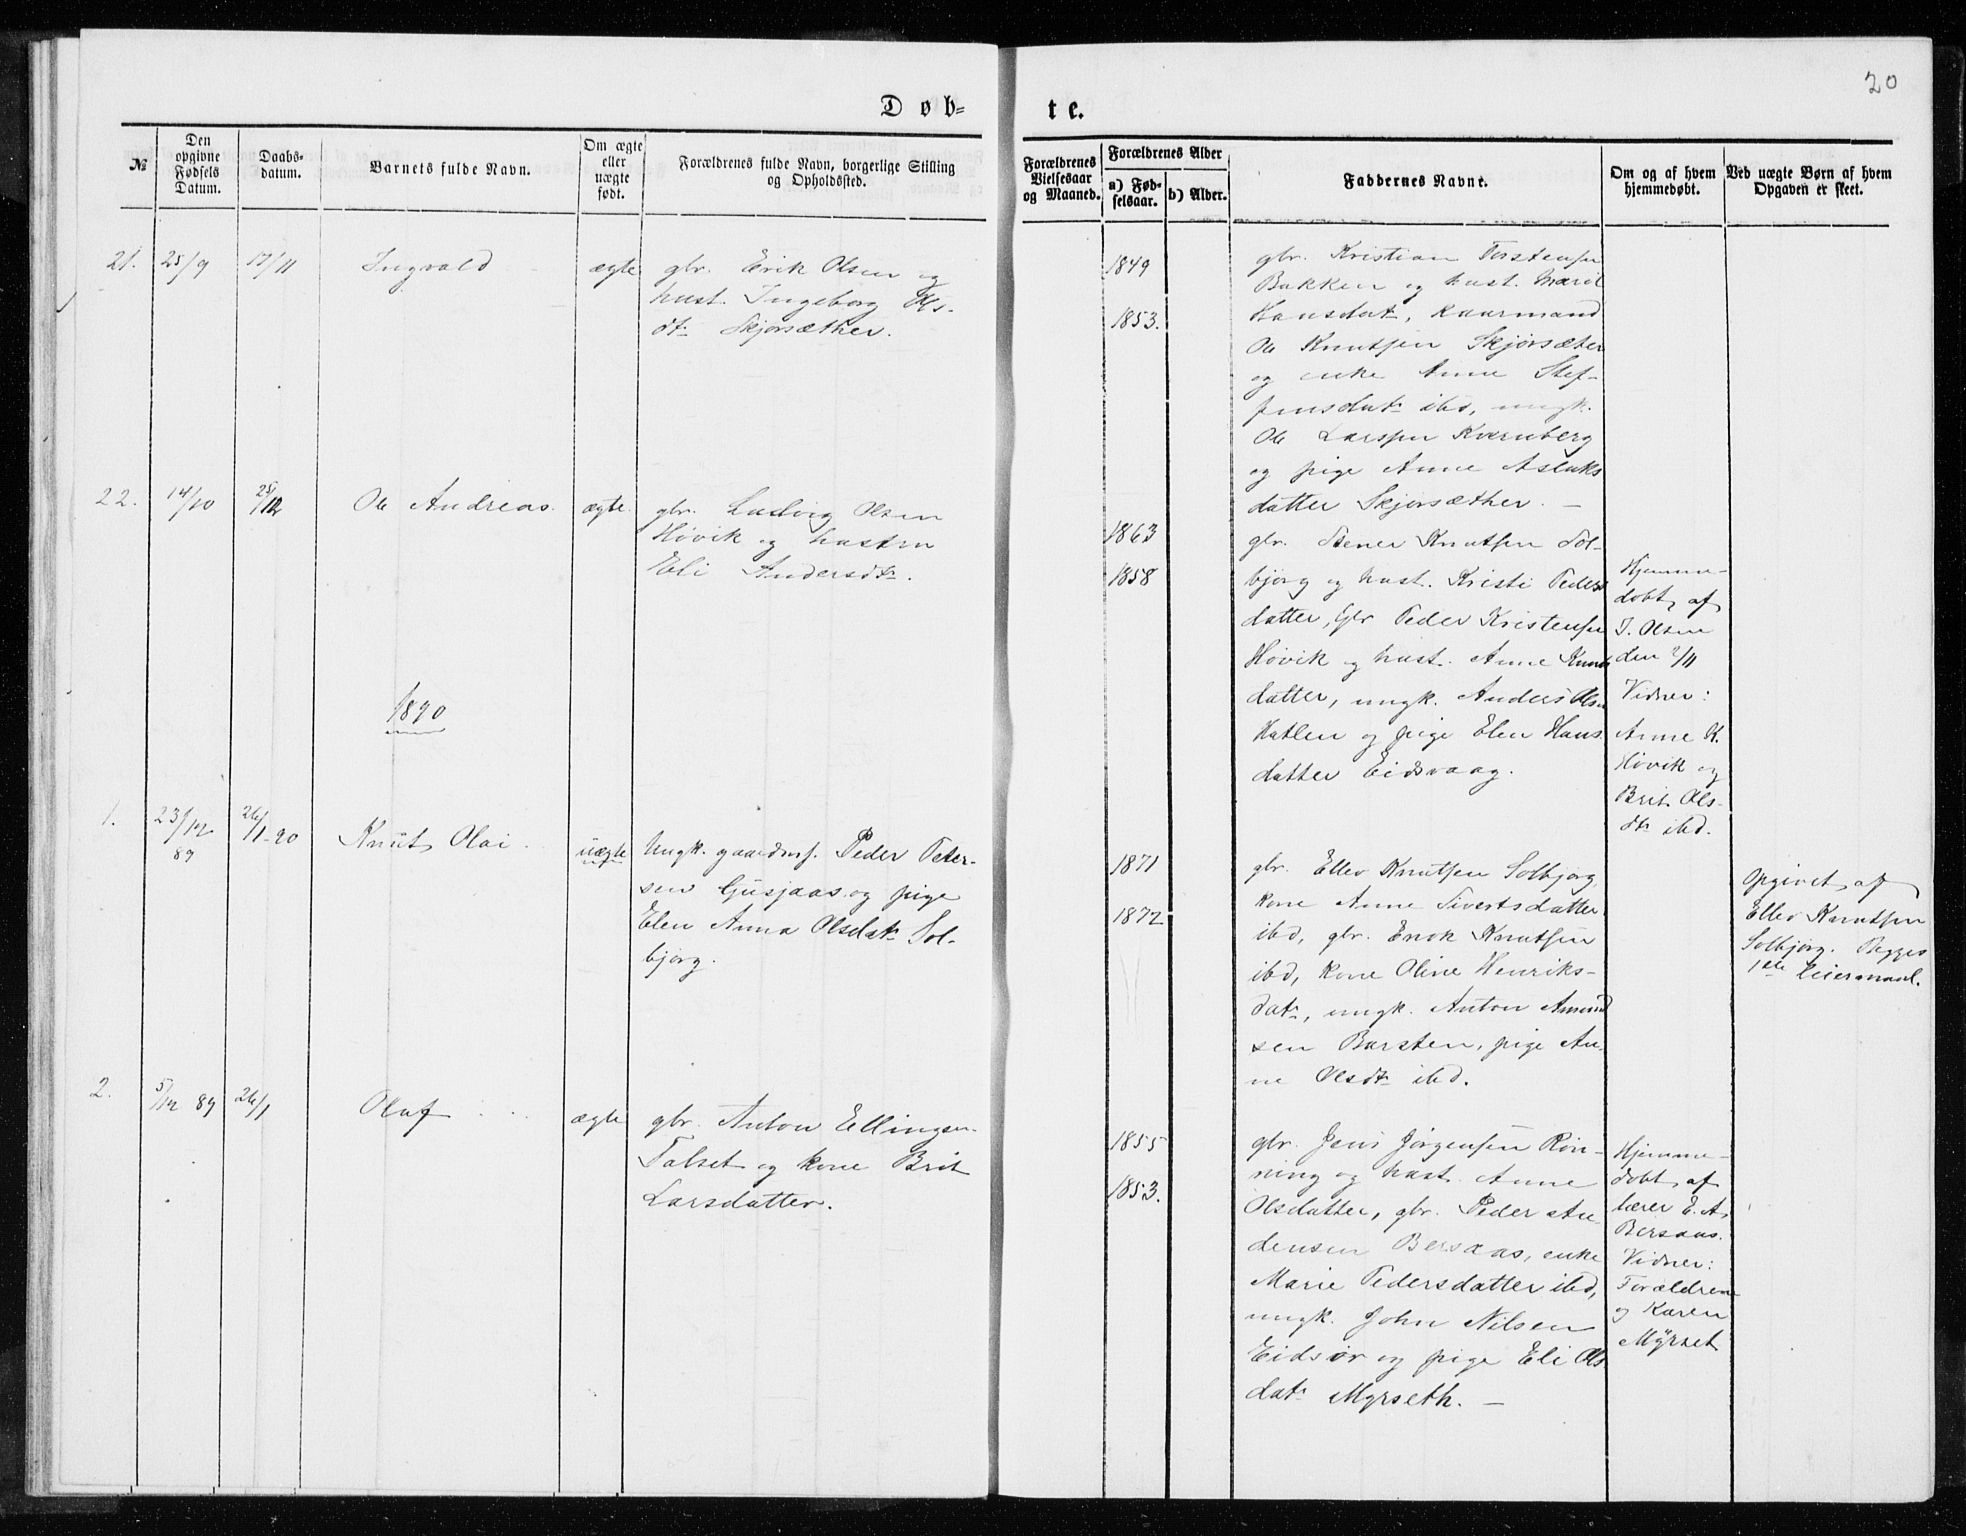 20
Døb-
te.
№
Den opgivne Fødsels Datum.
Daabs-datum.
Barnets fulde Navn.
Om ægte eller uægte født.
Forældrenes fulde Navn, borgerlige Stilling og Opholdssted.
Forældrenes Vielsesaar og Maaned.
Forældrenes Alder
a) Fød-selsaar.
b) Alder.
Faddernes Navne.
Om og af hvem hjemmedøbt.
Ved uægte Børn af hvem Opgaven er skeet.
21.
25/9
17/11
Ingvald
ægte
gbr. Erik Olsen og
hust. Ingeborg Ols-
dt. Skjørsæther.
1849
1853.
gbr. Kristian Torstensen
Bakken og hust. Marit
Hansdat., Kaarmand
Ole Knutsen Skjørsæter
og enke Anne Stef-
fensdat. ibd, ungk.
Ole Larssen Kvernberg
og pige Anne Aslaks
datter Skjørsæther. —
22.
14/10
25/12
Ole Andreas.
ægte.
gbr. Ludvig Olsen
Høvik og hustru
Eli Andersdt.
1863
1858
gbr. Stener Knutsen Sol-
bjørg og hust. Kristi Peders
datter, Gbr Peder Kristensen
Høvik og hust. Anne Knuts
datter, ungk. Anders Olsen
Hatlen og pige Elen Hans
datter Eidsvaag.
Hjemme-
døbt af
I. Olsen
den 2/11
Vidner:
Anne K.
Høvik og
Brit Ols-
dt. ibd.
1890
1.
23/12
89
26/1-90
Knut Olai
uægte
Ungk. gaardmf. Peder Peter-
sen Gusjaas og pige
Elen Anna Olsdat. Sol-
bjørg.
1871
1872
gbr. Ellev Knutsen Solbjørg,
kone Anne Sivertsdatter
ibd, gbr. Enok Knutsen
ibd, kone Oline Henriks-
dat., ungk. Anton Amund
sen Barsten, pige An-
ne Olsdt. ibd.
Opgivet af
Ellev Knutsen
Solbjørg. Begges
1ste Leiermaal.
2.
5/12 89
26/1
Olaf
ægte
gbr. Anton Ellingsen
Talset og kone Brit
Larsdatter.
1855
1853.
gbr. Jens Jørgensen Røn-
ning og hust. Anne
Olsdatter, gbr. Peder An-
densen Bersaas, enke
Marie Pedersdatter ibd,
ungk. John Nilsen
Eidsør og pige Eli Ols
dat. Myrseth. —
Hjemme-
døbt af
lærer E. A.
Bersaas.
Vidner:
Forældrene
og Karen
Myrset